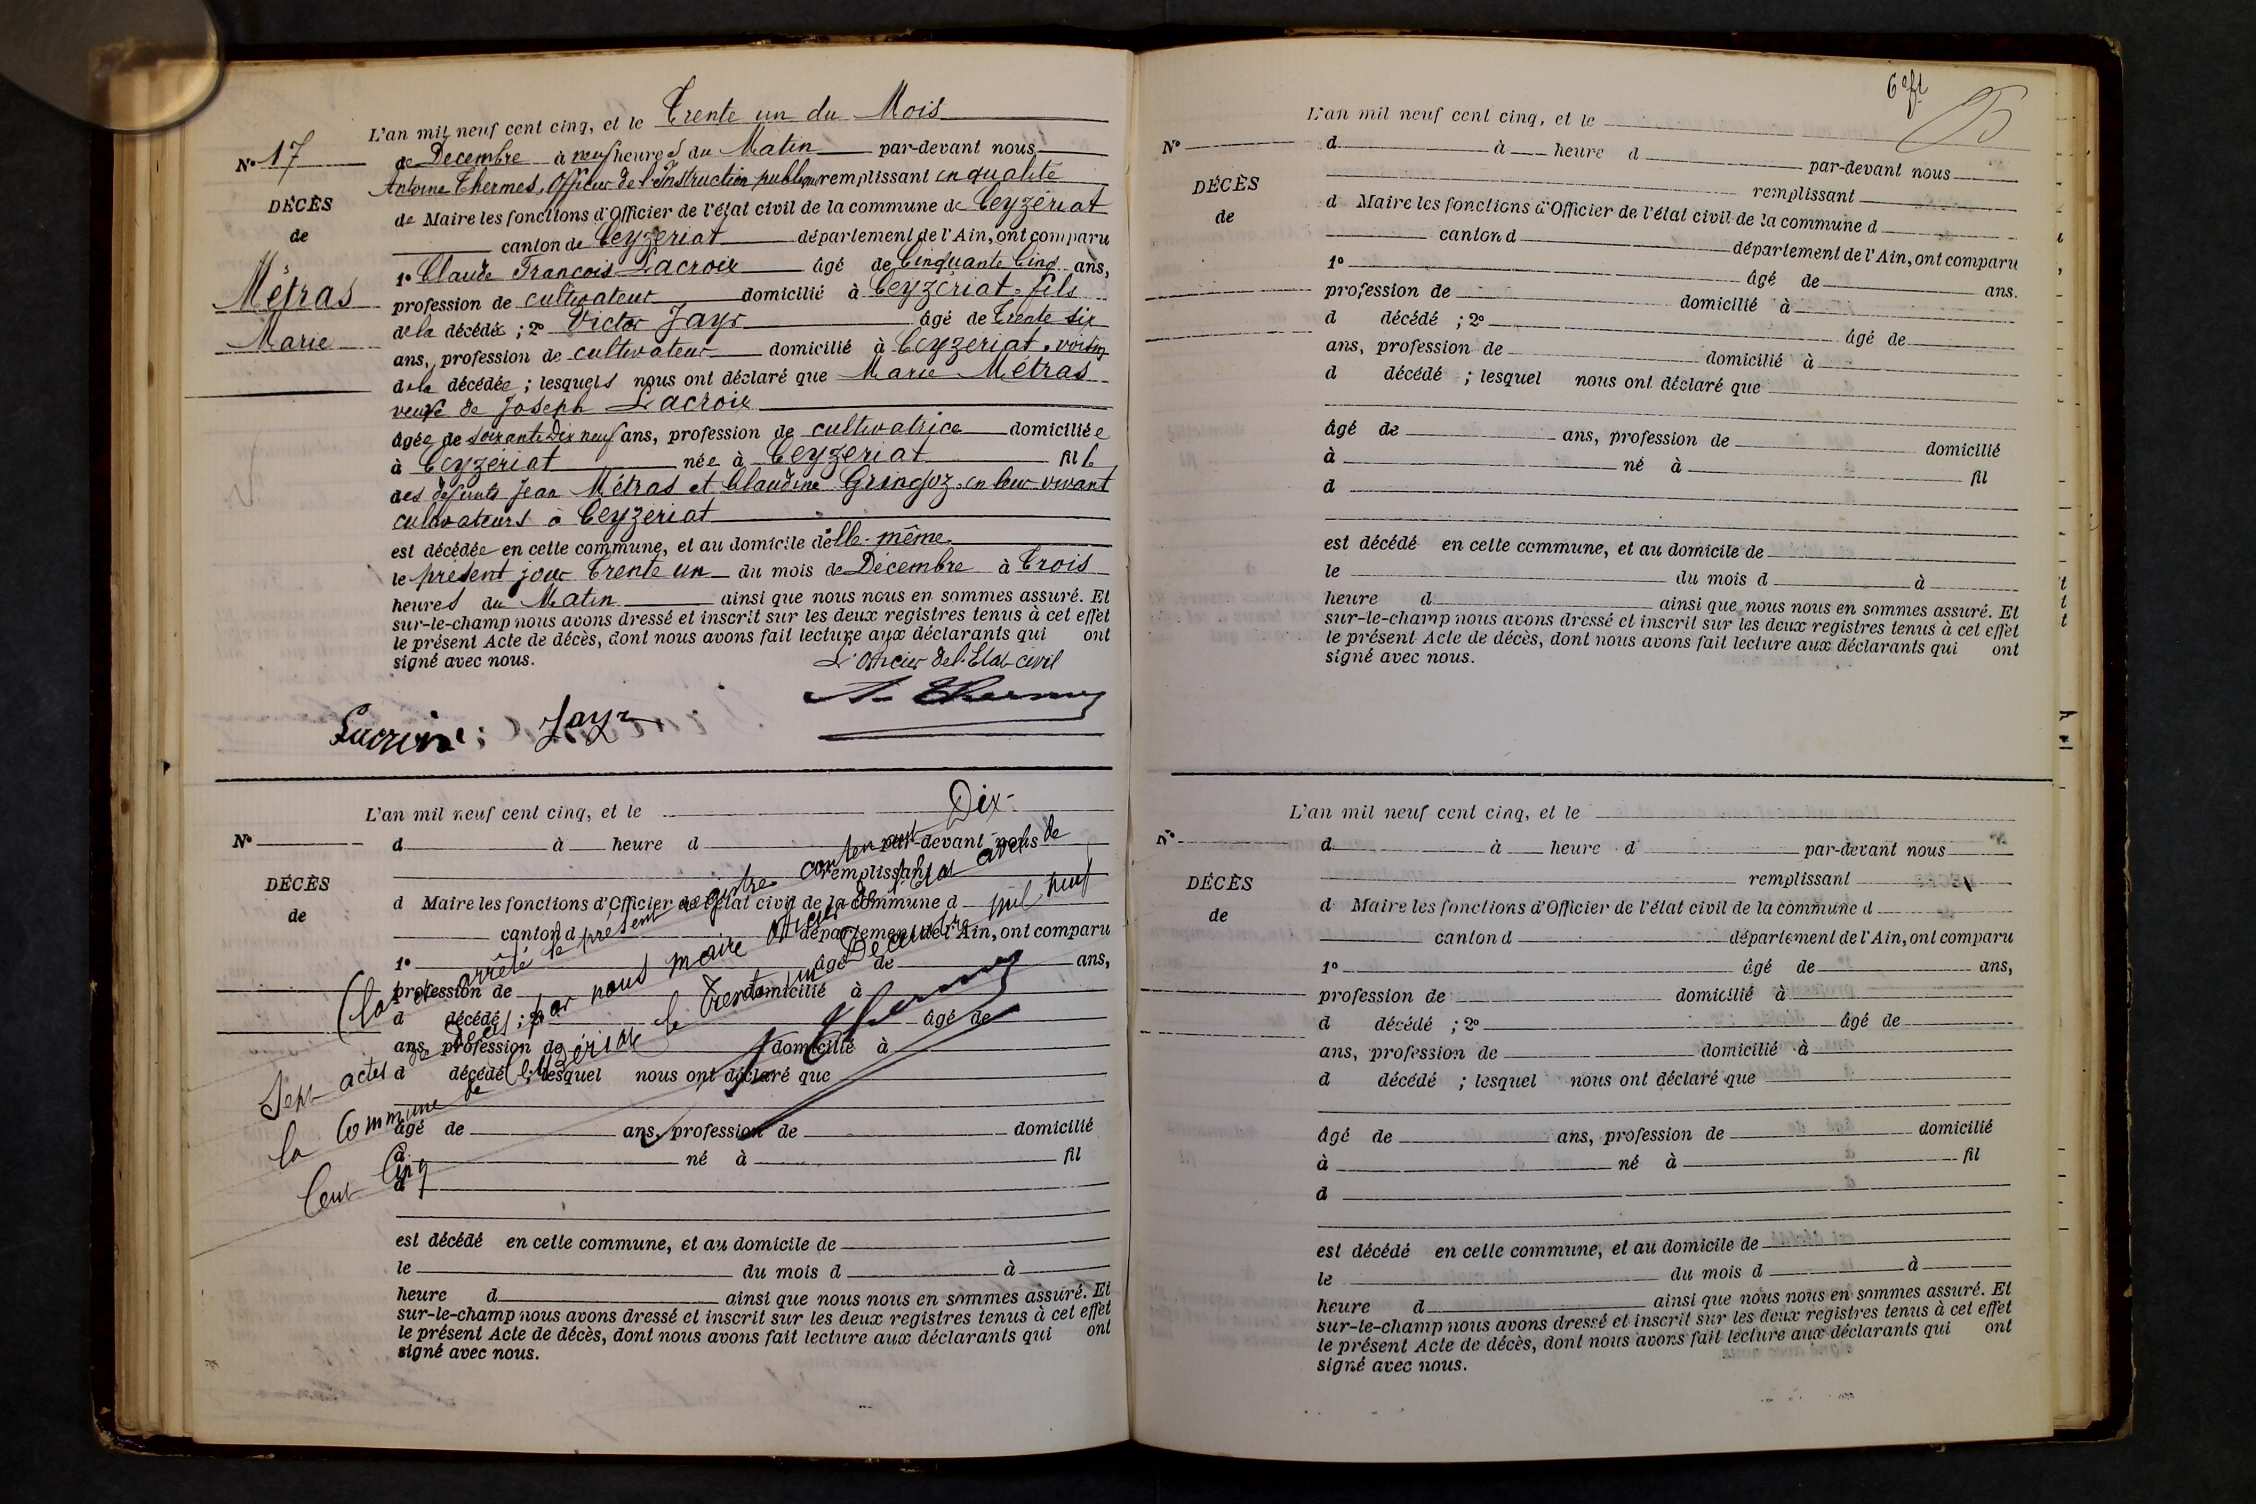 L'an mil neuf cent cinq, et le Trente un du Mois
N° 17
de Décembre à neuf heures du Matin par-devant nous
Antoine Thermes, Officier de l'Instruction publique remplissant en qualité
DÉCÈS
de Maire les fonctions d'Officier de l'état civil de la commune de Ceyzériat
de
canton de Ceyzériat département de l'Ain, ont comparu
1° Claude François Lacroix âgé de Cinquante Cinq ans,
Métras
profession de cultivateur domicilié à Ceyzériat, fils
de la décédée ; 2° Victor Jayr âgé de Trente six
Marie
ans, profession de cultivateur domicilié à Ceyzériat, voisin
de la décédée ; lesquels nous ont déclaré que Marie Métras
veuve de Joseph Lacroix
âgée de soixante Dix neuf ans, profession de cultivatrice domiciliée
à Ceyzériat née à Ceyzériat fille
des défunts Jean Métras et Claudine Gringoz, en leur vivant
cultivateurs à Ceyzériat
est décédée en cette commune, et au domicile d'elle-même
le présent jour Trente un du mois de Décembre à Trois
heures du Matin ainsi que nous nous en sommes assuré. Et
sur-le-champ nous avons dressé et inscrit sur les deux registres tenus à cet effet
le présent Acte de décès, dont nous avons fait lecture aux déclarants qui ont
signé avec nous.
L'Officier de l'Etat civil
A. Thermes
Lacroix
Jayr
L'an mil neuf cent cinq, et le
N°
d à heure d par-devant nous
remplissant
DÉCÈS
d Maire les fonctions d'Officier de l'état civil de la commune d
de
canton d département de l'Ain, ont comparu
1° âgé de ans,
profession de domicilié à
d décédé ; 2° âgé de
ans, profession de domicilié à
d décédé ; lesquel nous ont déclaré que
âgé de ans, profession de domicilié
à né à fil
d
est décédé en cette commune, et au domicile de
le du mois d à
heure d ainsi que nous nous en sommes assuré. Et
sur-le-champ nous avons dressé et inscrit sur les deux registres tenus à cet effet
le présent Acte de décès, dont nous avons fait lecture aux déclarants qui ont
signé avec nous.
Clos et arrêté le présent registre contenant Dix-
Sept actes de décès, par nous maire officier de l'Etat civil de
la Commune de Ceyzériat le Trente un Décembre mil neuf
Cent Cinq
A Thermes
6e ft
L'an mil neuf cent cinq, et le
N°
d à heure d par-devant nous
remplissant
DÉCÈS
d Maire les fonctions d'Officier de l'état civil de la commune d
de
canton d département de l'Ain, ont comparu
1° âgé de ans.
profession de domicilié à
d décédé ; 2° âgé de
ans, profession de domicilié à
d décédé ; lesquel nous ont déclaré que
âgé de ans, profession de domicilié
à né à fil
d
est décédé en cette commune, et au domicile de
le du mois d à
heure d ainsi que nous nous en sommes assuré. Et
sur-le-champ nous avons dressé et inscrit sur les deux registres tenus à cet effet
le présent Acte de décès, dont nous avons fait lecture aux déclarants qui ont
signé avec nous.
L'an mil neuf cent cinq, et le
N°
d à heure d par-devant nous
remplissant
DÉCÈS
d Maire les fonctions d'Officier de l'état civil de la commune d
de
canton d département de l'Ain, ont comparu
1° âgé de ans,
profession de domicilié à
d décédé ; 2° âgé de
ans, profession de domicilié à
d décédé ; lesquel nous ont déclaré que
âgé de ans, profession de domicilié
à né à fil
d
est décédé en cette commune, et au domicile de
le du mois d à
heure d ainsi que nous nous en sommes assuré. Et
sur-le-champ nous avons dressé et inscrit sur les deux registres tenus à cet effet
le présent Acte de décès, dont nous avons fait lecture aux déclarants qui ont
signé avec nous.